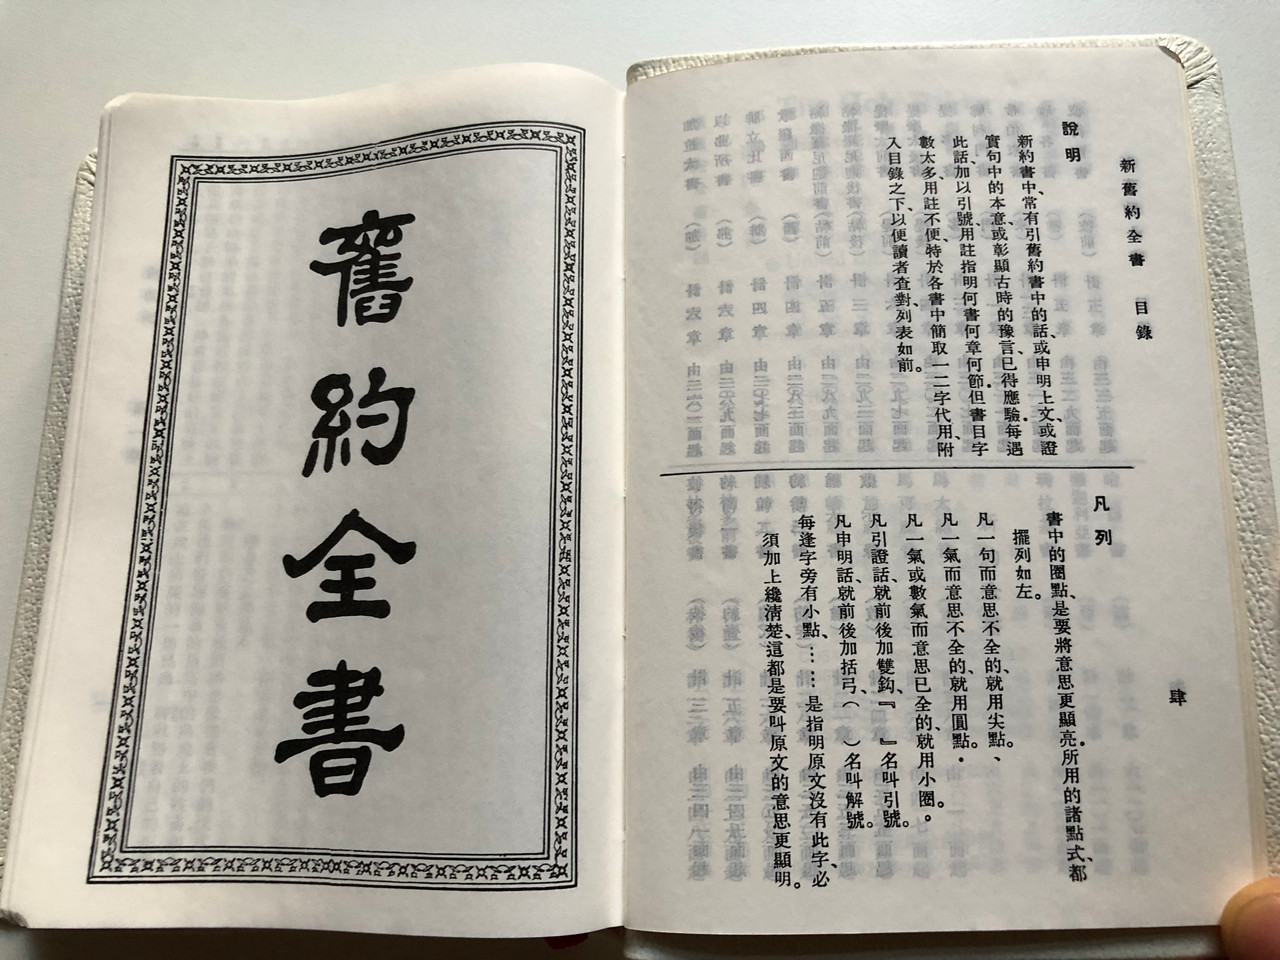 新舊約全書 目錄
肆
說明
新約書中、常有引舊約書中的話、或申明上文、或證
實句中的本意、或彰顯古時的豫言、已得應驗．每遇
此話、加以引號、用註指明何書何章何節．但書目字
數太多、用註不便、特於各書中簡取一二字代用、附
入目錄之下、以便讀者查對、列表如前。
凡列
書中的圈點、是要將意思更顯亮．所用的諸點式、都
擺列如左。
凡一句而意思不全的、就用尖點。、
凡一氣而意思不全的、就用圓點。．
凡一氣或數氣而意思已全的、就用小圈。。
凡引證話、就前後加雙鈎、『 』名叫引號。
凡申明話、就前後加括弓、（ ）名叫解號。
每逢字旁有小點、……是指明原文沒有此字、必
須加上纔清楚、這都是要叫原文的意思更顯明。
舊約全書